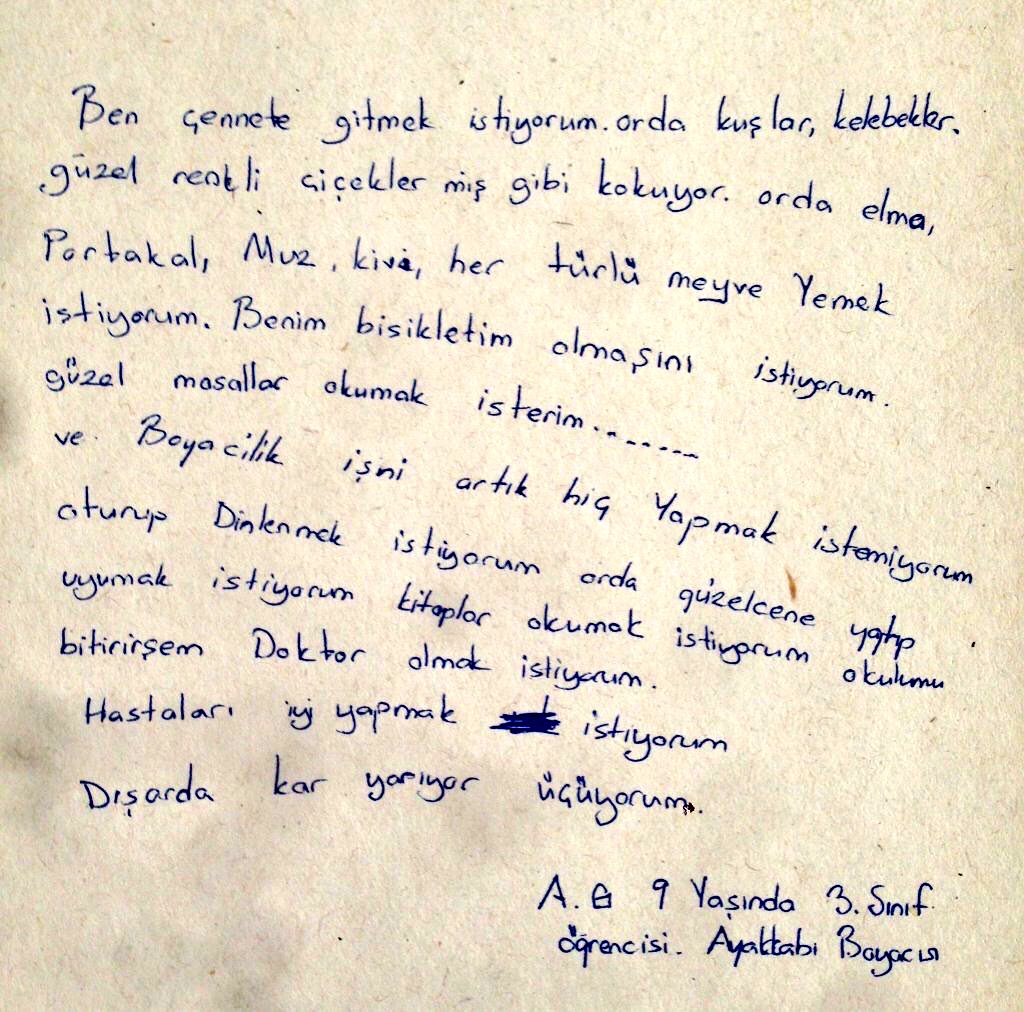 Ben çennete gitmek istiyorum. orda kuşlar, kelebekler.
güzel renkli çiçekler miş gibi kokuyor. orda elma,
Portakal, Muz, kivi, her türlü meyve Yemek
istiyorum. Benim bisikletim olmaşını istiyorum.
güzel masallar okumak isterim.......
ve Boyacilik işni artık hiç Yapmak istemiyorum
oturup Dinlenmek istiyorum orda güzelcene yatıp
uyumak istiyorum kitaplar okumak istiyorum okulumu
bitirirşem Doktor olmak istiyorum.
Hastaları iyi yapmak istiyorum
Dışarda kar yarıyor üçüyorum.
A. G 9 Yaşında 3. Sınıf
öğrencisi. Ayakkabı Boyacısı